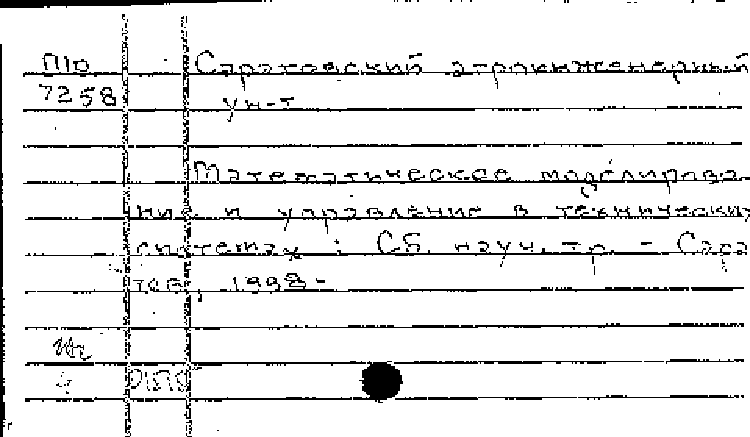 П10 Саратовский агроинженерный
7258 ун-т
Математическое моделирова-
ние и управление в технических
системах : Сб. науч. тр. - Сара
тов, 1998-
4